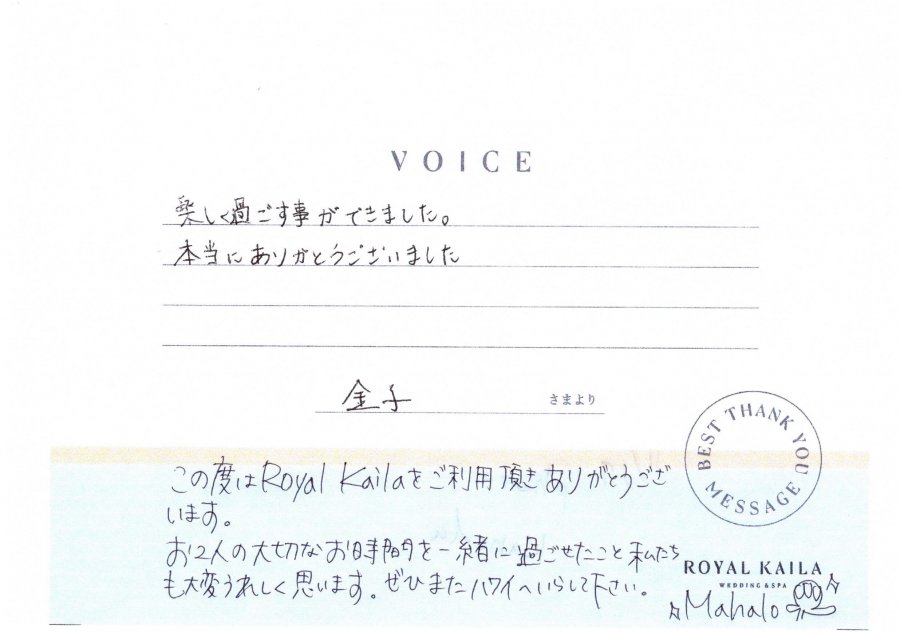 VOICE
楽しく過ごす事ができました。
本当にありがとうございました
金子 さまより
BEST THANK YOU MESSAGE
この度はRoyal Kailaをご利用頂きありがとうござ
います。
お2人の大切なお時間を一緒に過ごせたこと私たち
も大変うれしく思います。ぜひまたハワイへいらして下さい。
ROYAL KAILA
WEDDING & SPA
Mahalo